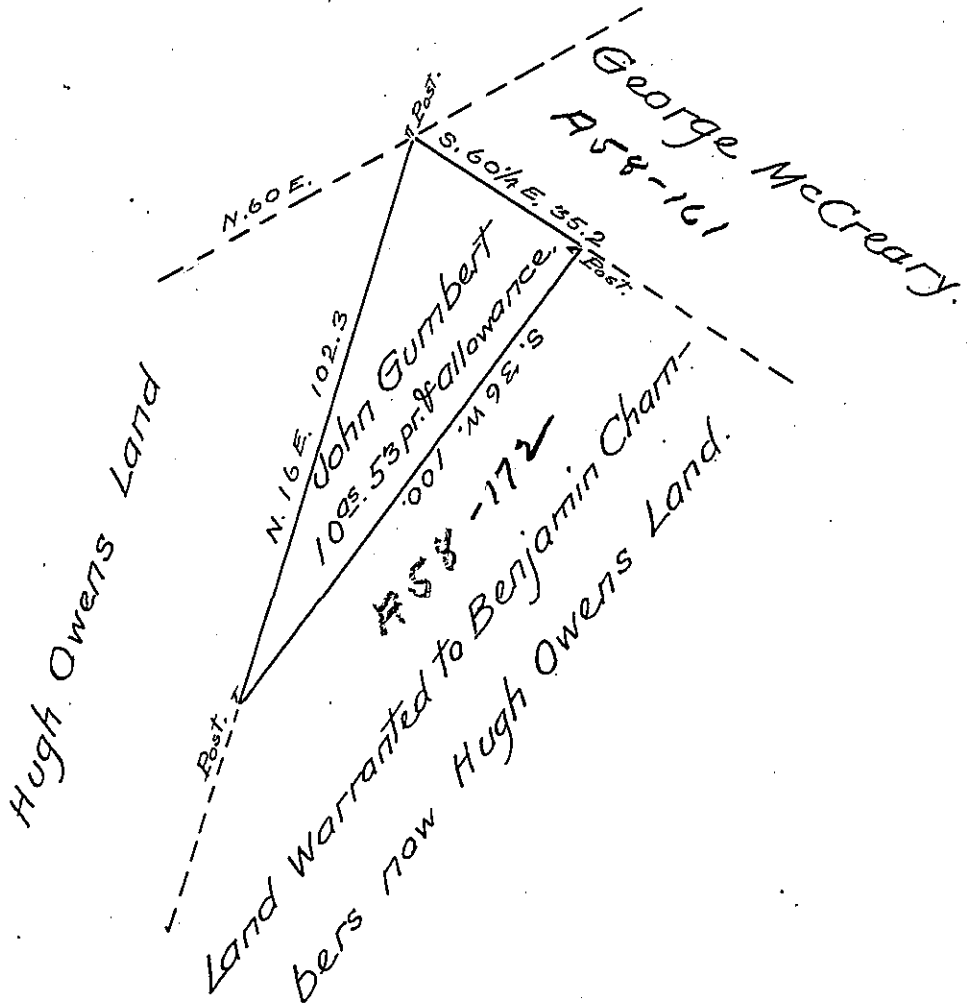 George McCreary.
A58-161
Post.
N.60 E.
S. 60¼ E. 35.2
Post.
N. 16 E. 102.3
John Gumbert
10as. 53 pr. & allowance.
S. 36 W. 100.
A58-172
Hugh Owens Land
Post.
Land Warranted to Benjamin Cham-
bers now Hugh Owens Land.